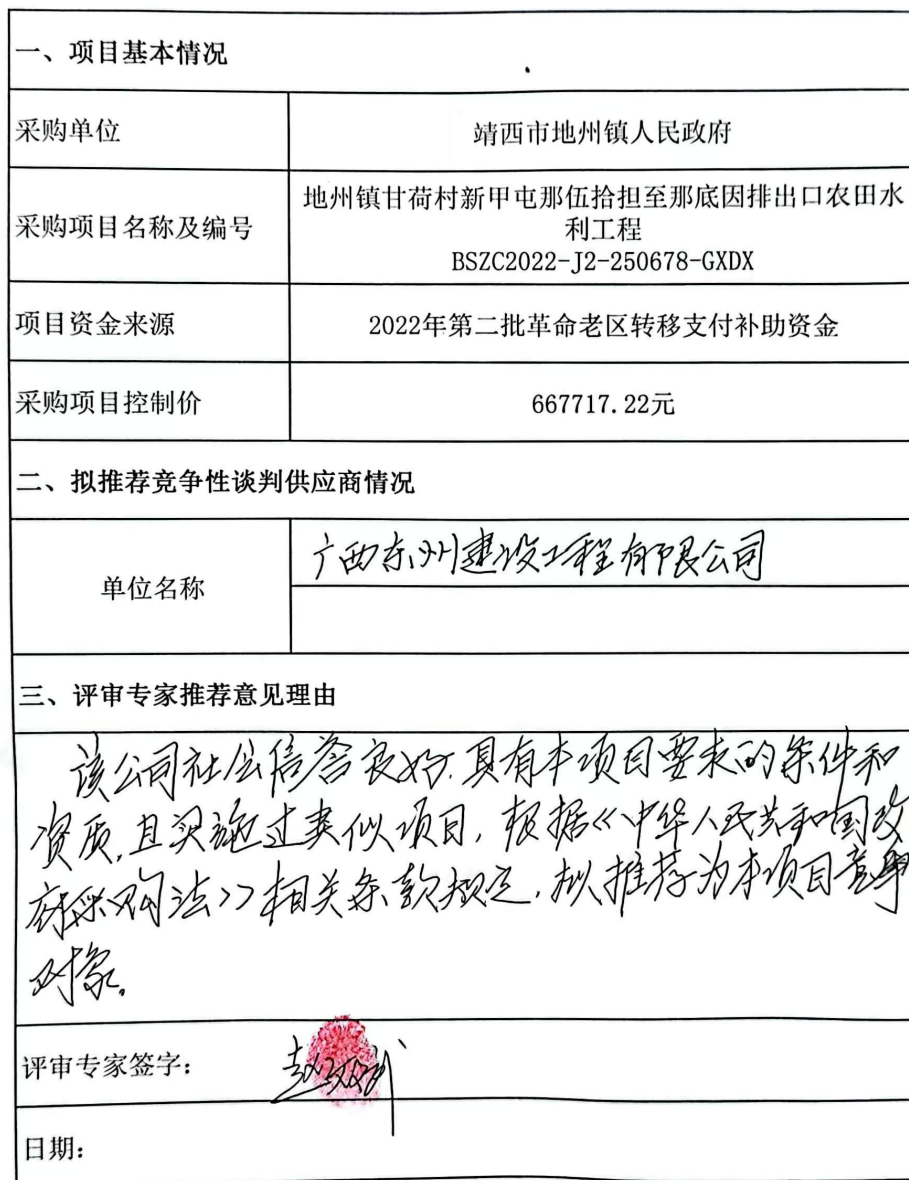 一、项目基本情况
采购单位
靖西市地州镇人民政府
采购项目名称及编号
地州镇甘荷村新甲屯那伍拾担至那底因排出口农田水
利工程
BSZC2022-J2-250678-GXDX
项目资金来源
2022年第二批革命老区转移支付补助资金
采购项目控制价
667717.22元
二、拟推荐竞争性谈判供应商情况
单位名称
广西东州建设工程有限公司
三、评审专家推荐意见理由
该公司社会信誉良好,具有本项目要求的条件和
资质,且实施过类似项目,根据《中华人民共和国政
府采购法》相关条款规定,拟推荐为本项目竞争
对象。
评审专家签字:
日期: